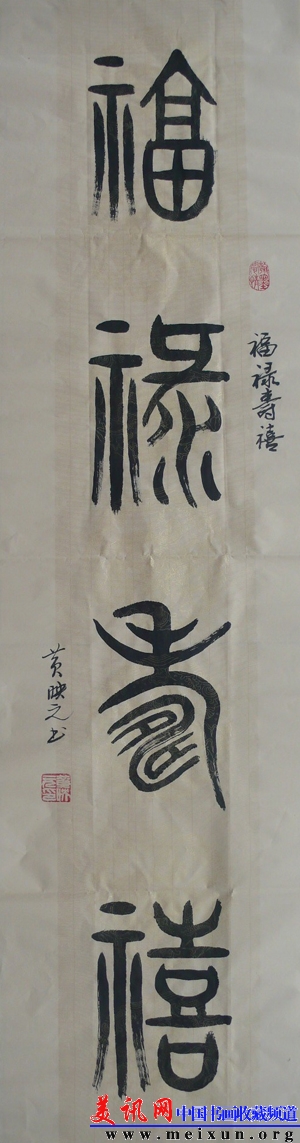 福祿壽禧
福禄寿禧
黄映元书
美讯网 中国书画收藏频道
www.meixun.org